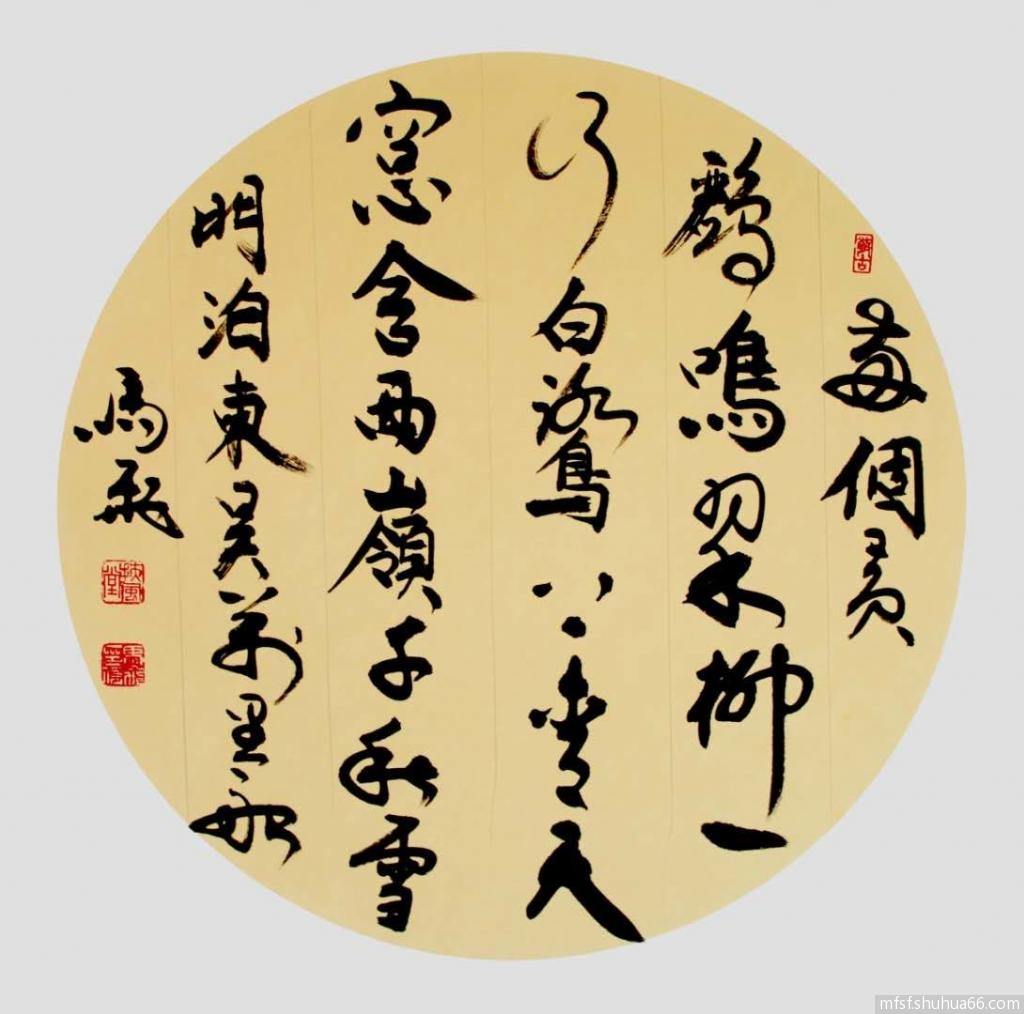 兩個黃
鸝鳴翠柳一
行白鷺上青天
窓含西嶺千秋雪
門泊東吳萬里船
馬飛
mfsf.shuhua66.com